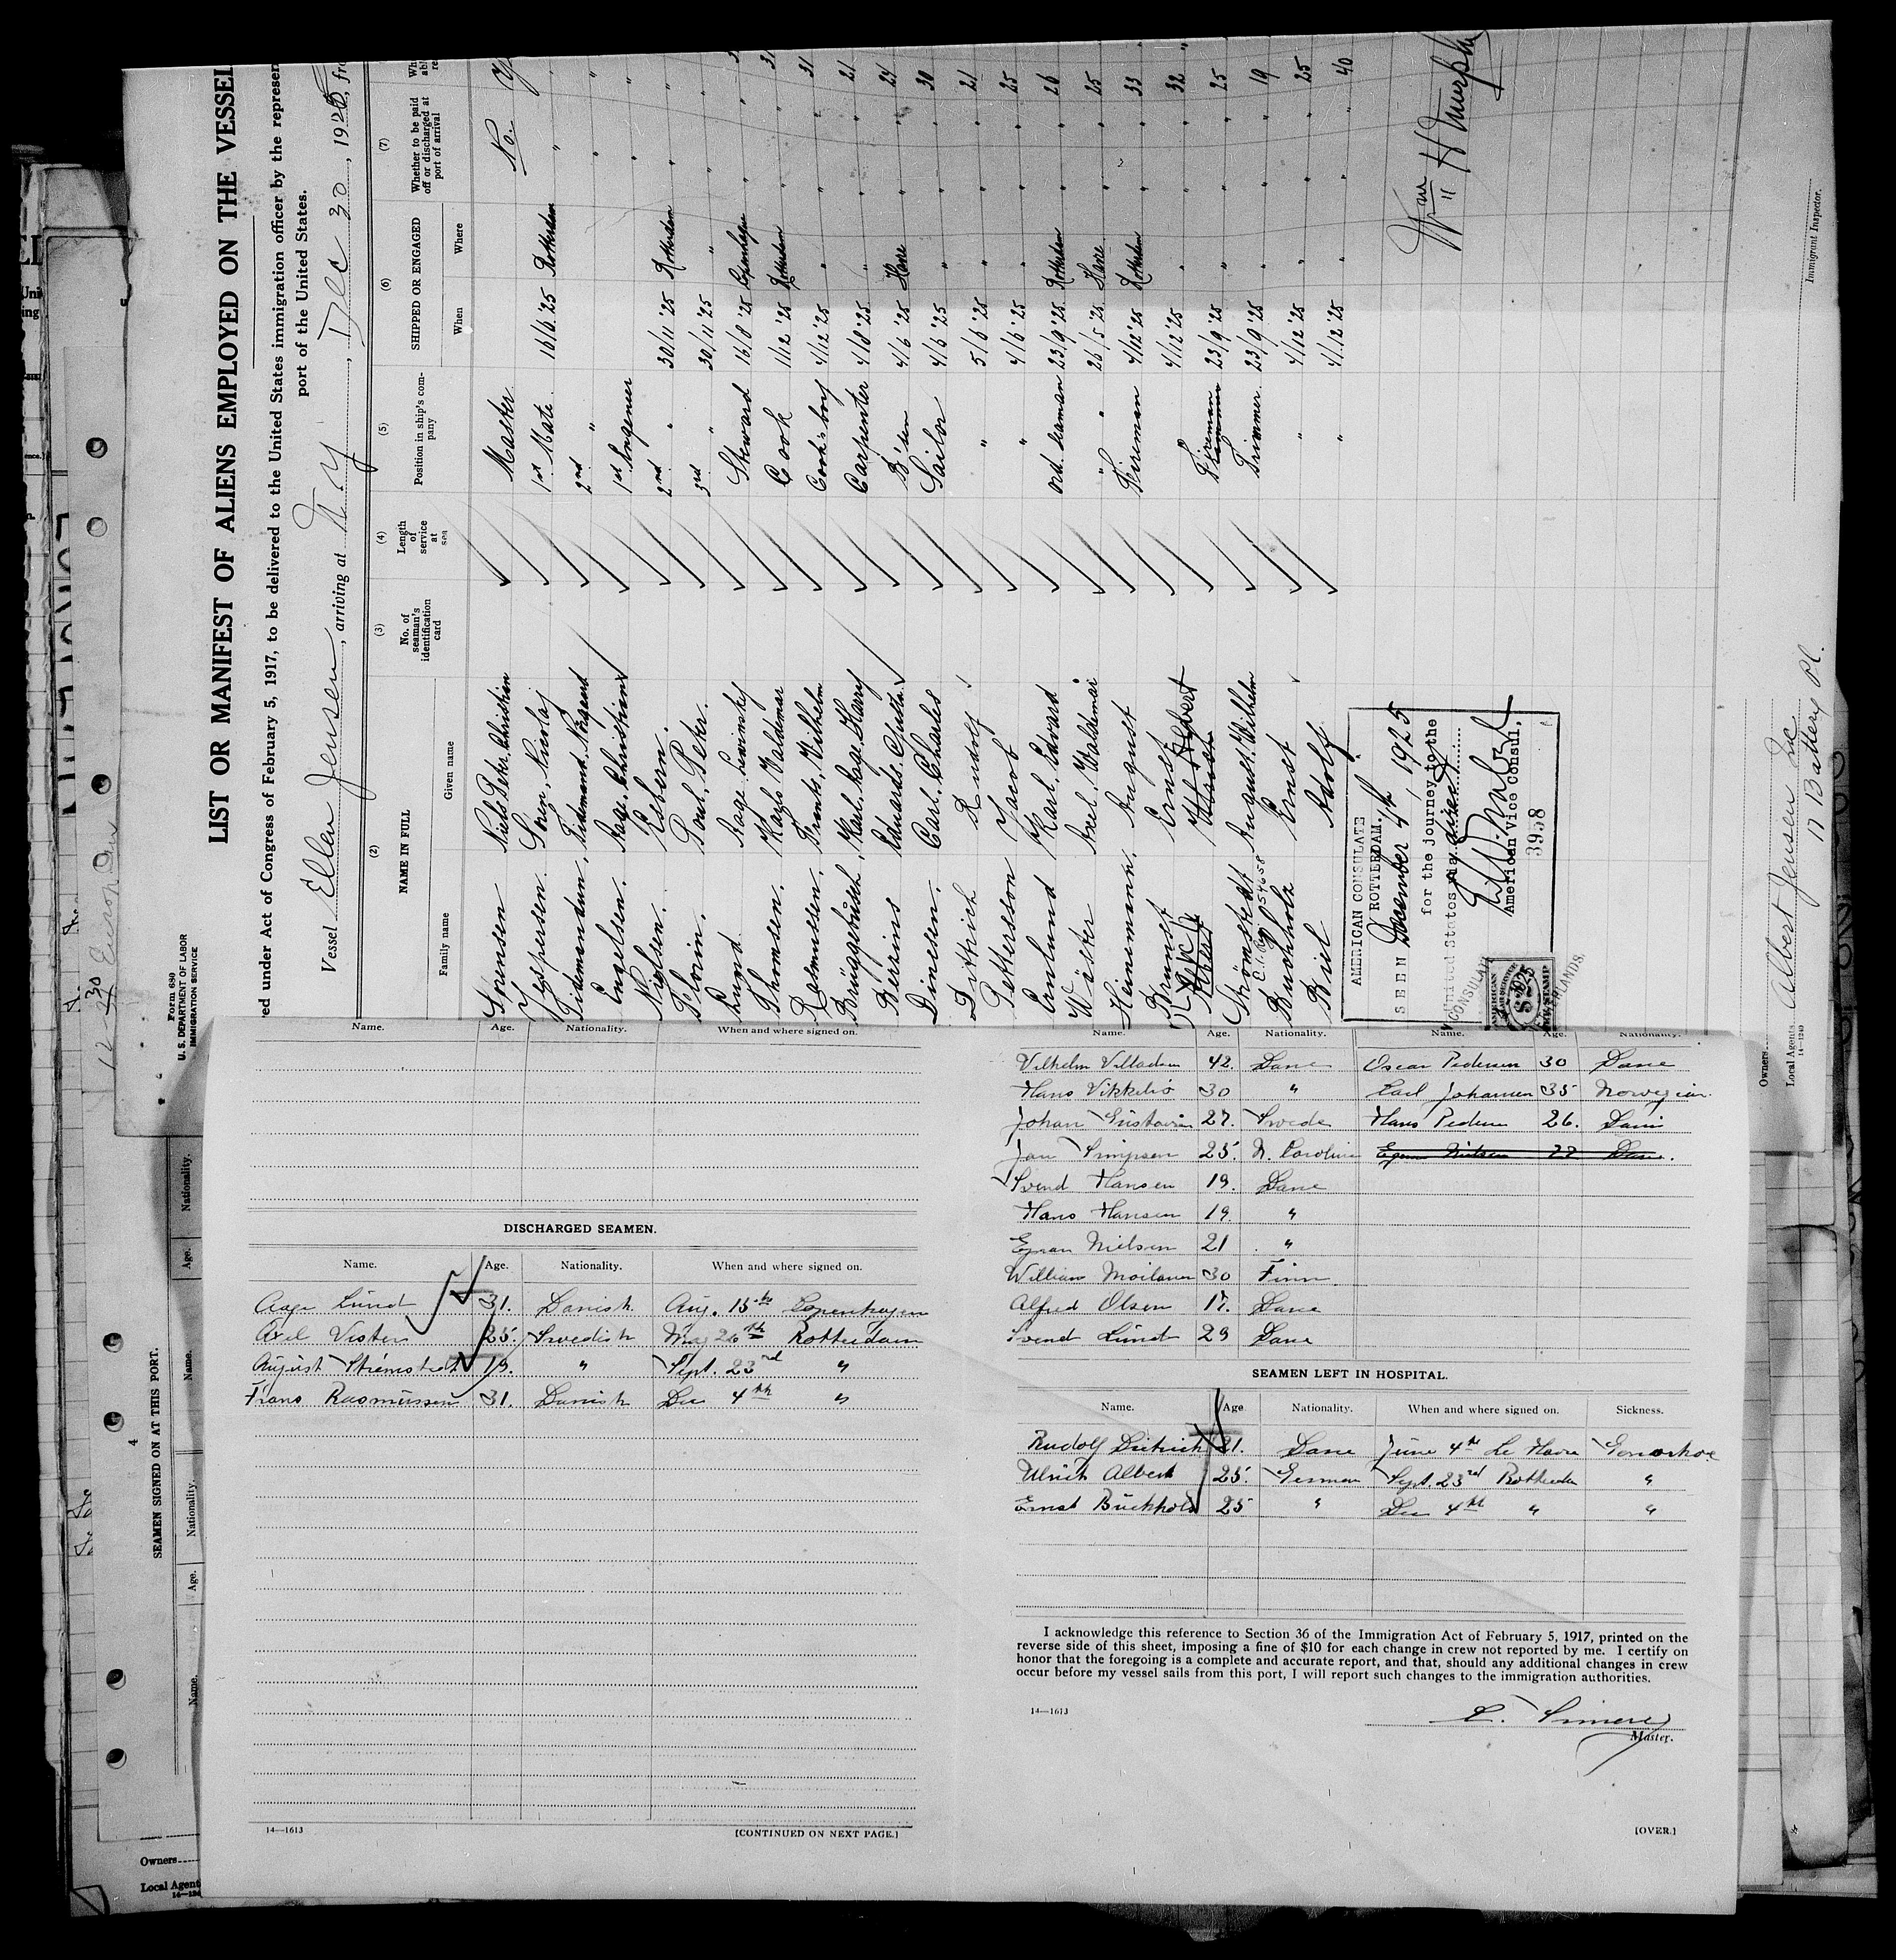 Form 680
U. S. DEPARTMENT OF LABOR
IMMIGRATION SERVICE
LIST OR MANIFEST OF ALIENS EMPLOYED ON THE VESSEL
ed under Act of Congress of February 5, 1917, to be delivered to the United States immigration officer by the represen
port of the United States.
Vessel Ellen Jensen, arriving at N. Y., Dec 30, 1925, fro
(2) (3) (4) (5) (6) (7)
NAME IN FULL
Family name Given name
No. of seaman's identification card
Length of service at sea
Position in ship's company
SHIPPED OR ENGAGED
When Where
Whether to be paid off or discharged at port of arrival
Sorensen Niels Peter Christian Master No.
Jespersen Soren, Nicolaj 1st Mate 16/6 '25 Rotterdam "
Tidemandsen, Tidemand 2nd " "
Engelsen. Aage. Christian 1st Engeneer "
Nielsen. Esbern. 2nd " 30/11 '25 Rotterdam "
Poul, Peter. 3rd " 30/11 '25 " "
Lund Aage Steward 16/8 '25 Copenhagen " 31
Thomsen. Karlo Valdemar Cook 1/12 '25 Rotterdam " 31
Rasmussen. Frants, Vilhelm Cook's boy 4/12 '25 " " 31
Brüggebusch, Karl. Aage. Harry Carpenter 4/8 '25 " " 21
Berrins Eduards B's'en 4/6 '25 Havre " 24
Dinesen. Carl. Charles Sailor 4/6 '25 " " 30
Dittrich Rudolf " 5/6 '25 " " 21
Pettersson Jacob " 4/6 '25 " " 25
Enlund Karl. Edvard Ord. Seaman 23/9 '25 Rotterdam " 26
Wäster Axel. Waldemar " " 26/5 '25 Havre " 25
Heinemann. August Fireman 4/12 '25 Rotterdam " 33
Brunst Ernst 4/12 '25 " " 32
Albert Ulrich Fireman 23/9 '25 " " 25
Strömstedt August. Wilhelm Trimmer 23/9 '25 " " 19
Buchholz Ernst " 4/12 '25 " " 25
Briel Adolf " 4/12 '25 " " 40
AMERICAN CONSULATE
ROTTERDAM.
SEEN December 4th 1925
for the journey to the
United States via direct
American Vice Consul.
3958
Wm H Murphy
Immigrant Inspector.
Owners
Local Agents Albert Jensen Inc
17 Battery Pl.
14-1240
4
SEAMEN SIGNED ON AT THIS PORT.
Name. Age. Nationality. Name. Age. Nationality.
Owners
Local Agent
Name. Age. Nationality. When and where signed on.
DISCHARGED SEAMEN.
Name. Age. Nationality. When and where signed on.
Aage Lund 31. Danish Aug. 15th Copenhagen
Axel Vister 25. Swedish May 26th Rotterdam
August Strömstedt 19. " Sept. 23rd "
Frans Rasmussen 31. Danish Dec 4th "
14—1613
[CONTINUED ON NEXT PAGE.]
Name. Age. Nationality. Name. Age. Nationality.
Vilhelm Villadsen 42. Dane Oscar Pedersen 30 Dane
Hans Vikkelsö 30 " Carl Johansen 35 Norwegian.
Johan Gustavson 27. Swede Hans Pedersen 26. Danis
Jan Simpson 25. N. Carolina Egon Nielsen 22 Dane.
Svend Hansen 19. Dane
Hans Hansen 19. "
Egvan Nielsen 21 "
William Moilanen 30 Finn
Alfred Olsen 17. Dane
Svend Lund 29 Dane
SEAMEN LEFT IN HOSPITAL.
Name. Age Nationality. When and where signed on. Sickness.
Rudolf Dietrich 21. Dane June 4th Le Havre
Ulrich Albert 25. German Sept. 23rd Rotterdam "
Ernst Buckhold 25 " Dec 4th " "
I acknowledge this reference to Section 36 of the Immigration Act of February 5, 1917, printed on the
reverse side of this sheet, imposing a fine of $10 for each change in crew not reported by me. I certify on
honor that the foregoing is a complete and accurate report, and that, should any additional changes in crew
occur before my vessel sails from this port, I will report such changes to the immigration authorities.
14—1613
Master.
[OVER.]